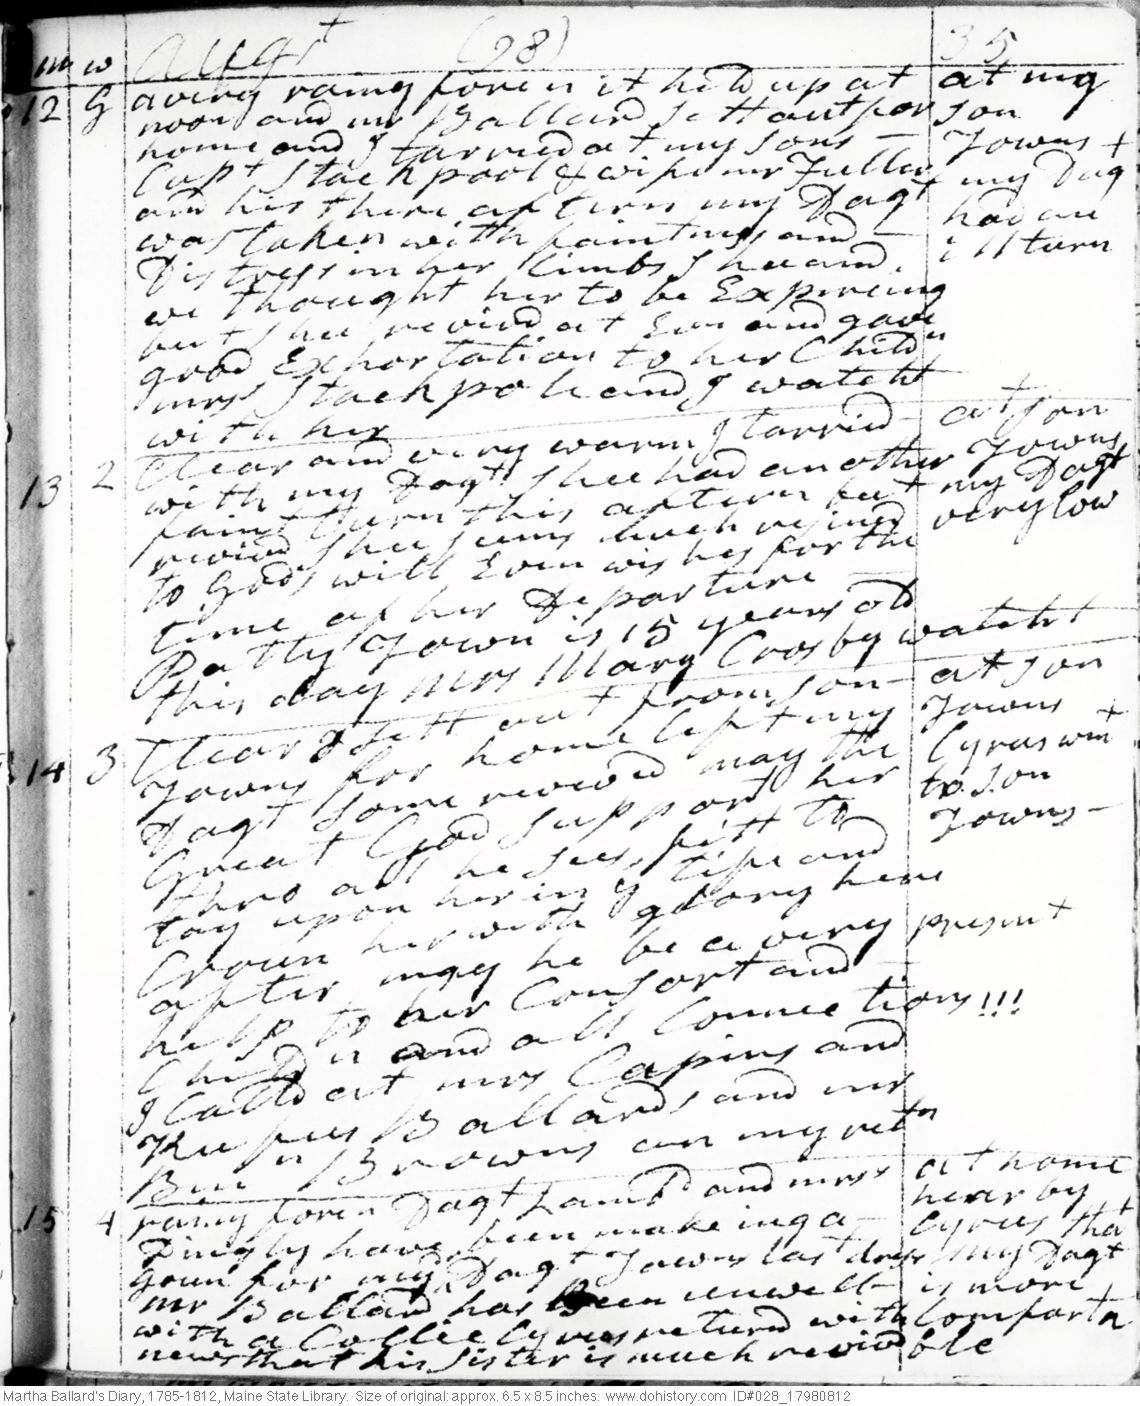 m w Augst (98) 35
12 G avery rainy foren it held up at at my
noon and mr Ballard sett out for son
home and I tarried at my sons — Towns +
Capt Stackpool & wife mr Fuller my Dagt
and his there aftern my Dagt had an
was taken with faintings and — ill turn
Distress in her limbs Shee and
we thought her to be Expireing
but shee revivd at Evn and gave
good Exhortation to her Childn
mrss Stackpole and I watcht
with her
13 2 Clear and very warm I tarried — at son
with my Dagt Shee had another Towns
faint turn this aftern but my Dagt
revivd Shee seems much resignd very low
to Gods will Even wishes for the
time of her Departure —
Patty Town is 15 years old
this day mrs Mary Crosby watcht
14 3 Clear I sett out from son — at son
Towns for home left my Towns +
Dagt some revivd may the Cyrus wnt
Great God support her to son
thro all he sees fitt to Towns —
lay upon her in ys life and
Crown her with glory here
after may he be a very present
help to her Consort and —
Childn and all Connections!!!
I Calld at mrs Capins and
Rufus Ballards and mr
Bn Browns on my retn
15 4 rainy foren Dagt Lambd and mrss at home
Dingly have been makeing a — near by
gown for my Dagt Towns last dress Cyrus tha
mr Ballard has Been unwell — my Dagt
with a Collic Cyrus returnd with is more
news that his sister is much revivd Comforta
ble
Martha Ballard's Diary, 1785-1812, Maine State Library. Size of original: approx. 6.5 x 8.5 inches. www.dohistory.com ID#028_17980812